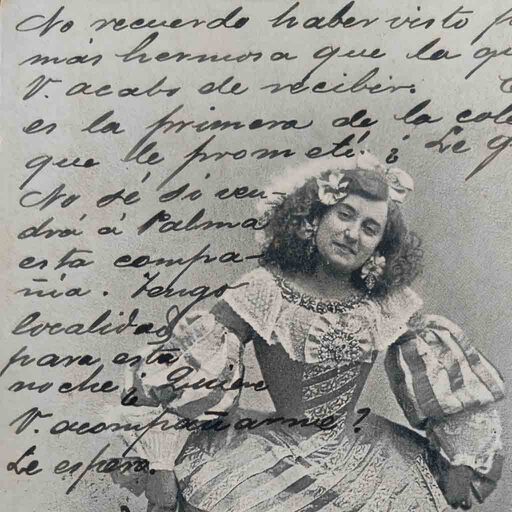 No recuerdo haber visto
más hermosa que la
V. acabo de recibir.
es la primera de la
que le prometí ¿ Le
No sé si ven-
drá á Palma
esta compa-
ñia. Tengo
localidad
para esta
noche ¿ Quiere
V. acompañarme?
Le espero.